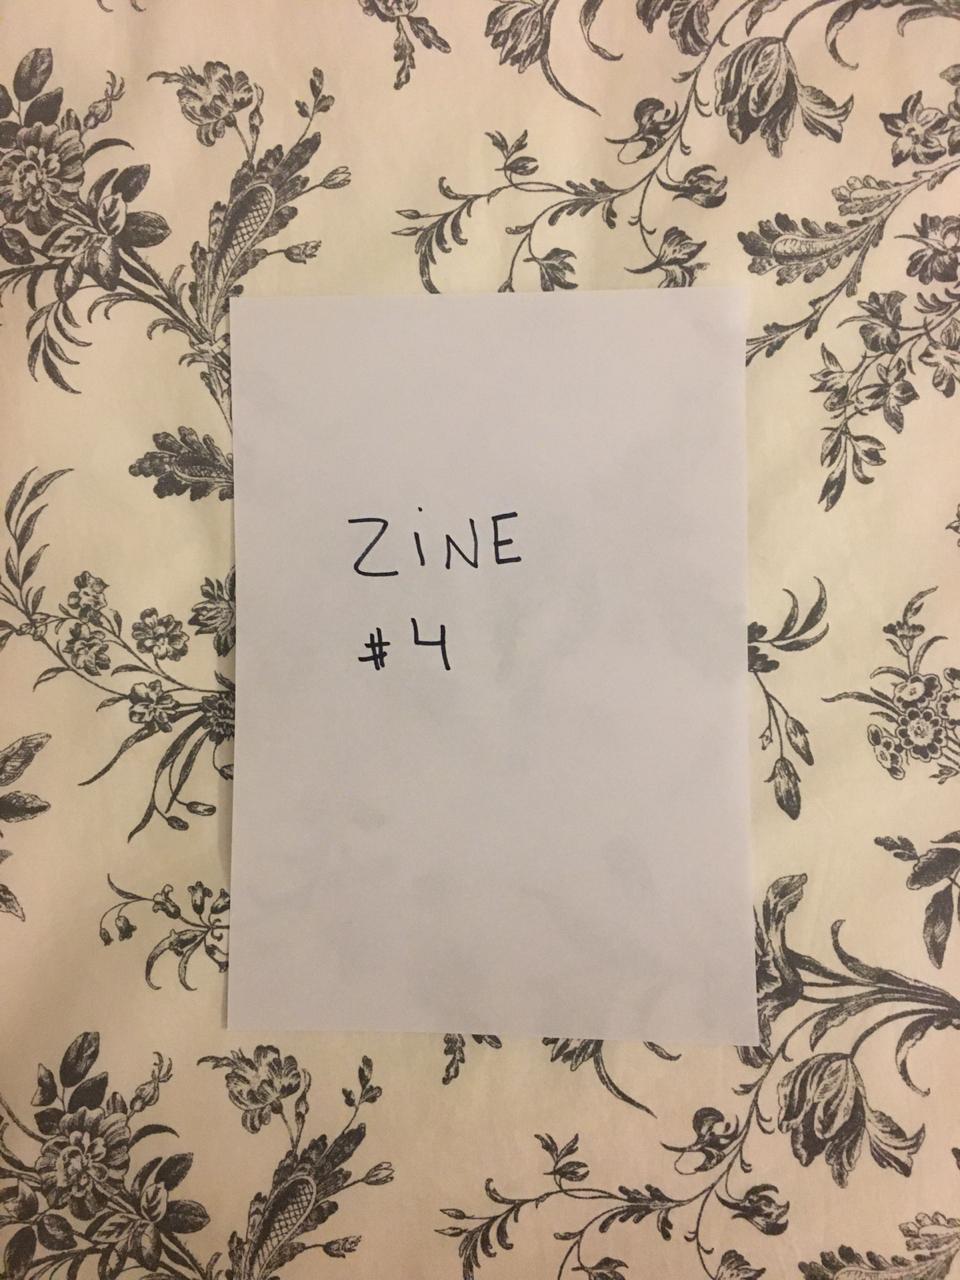 ZiNE
#4